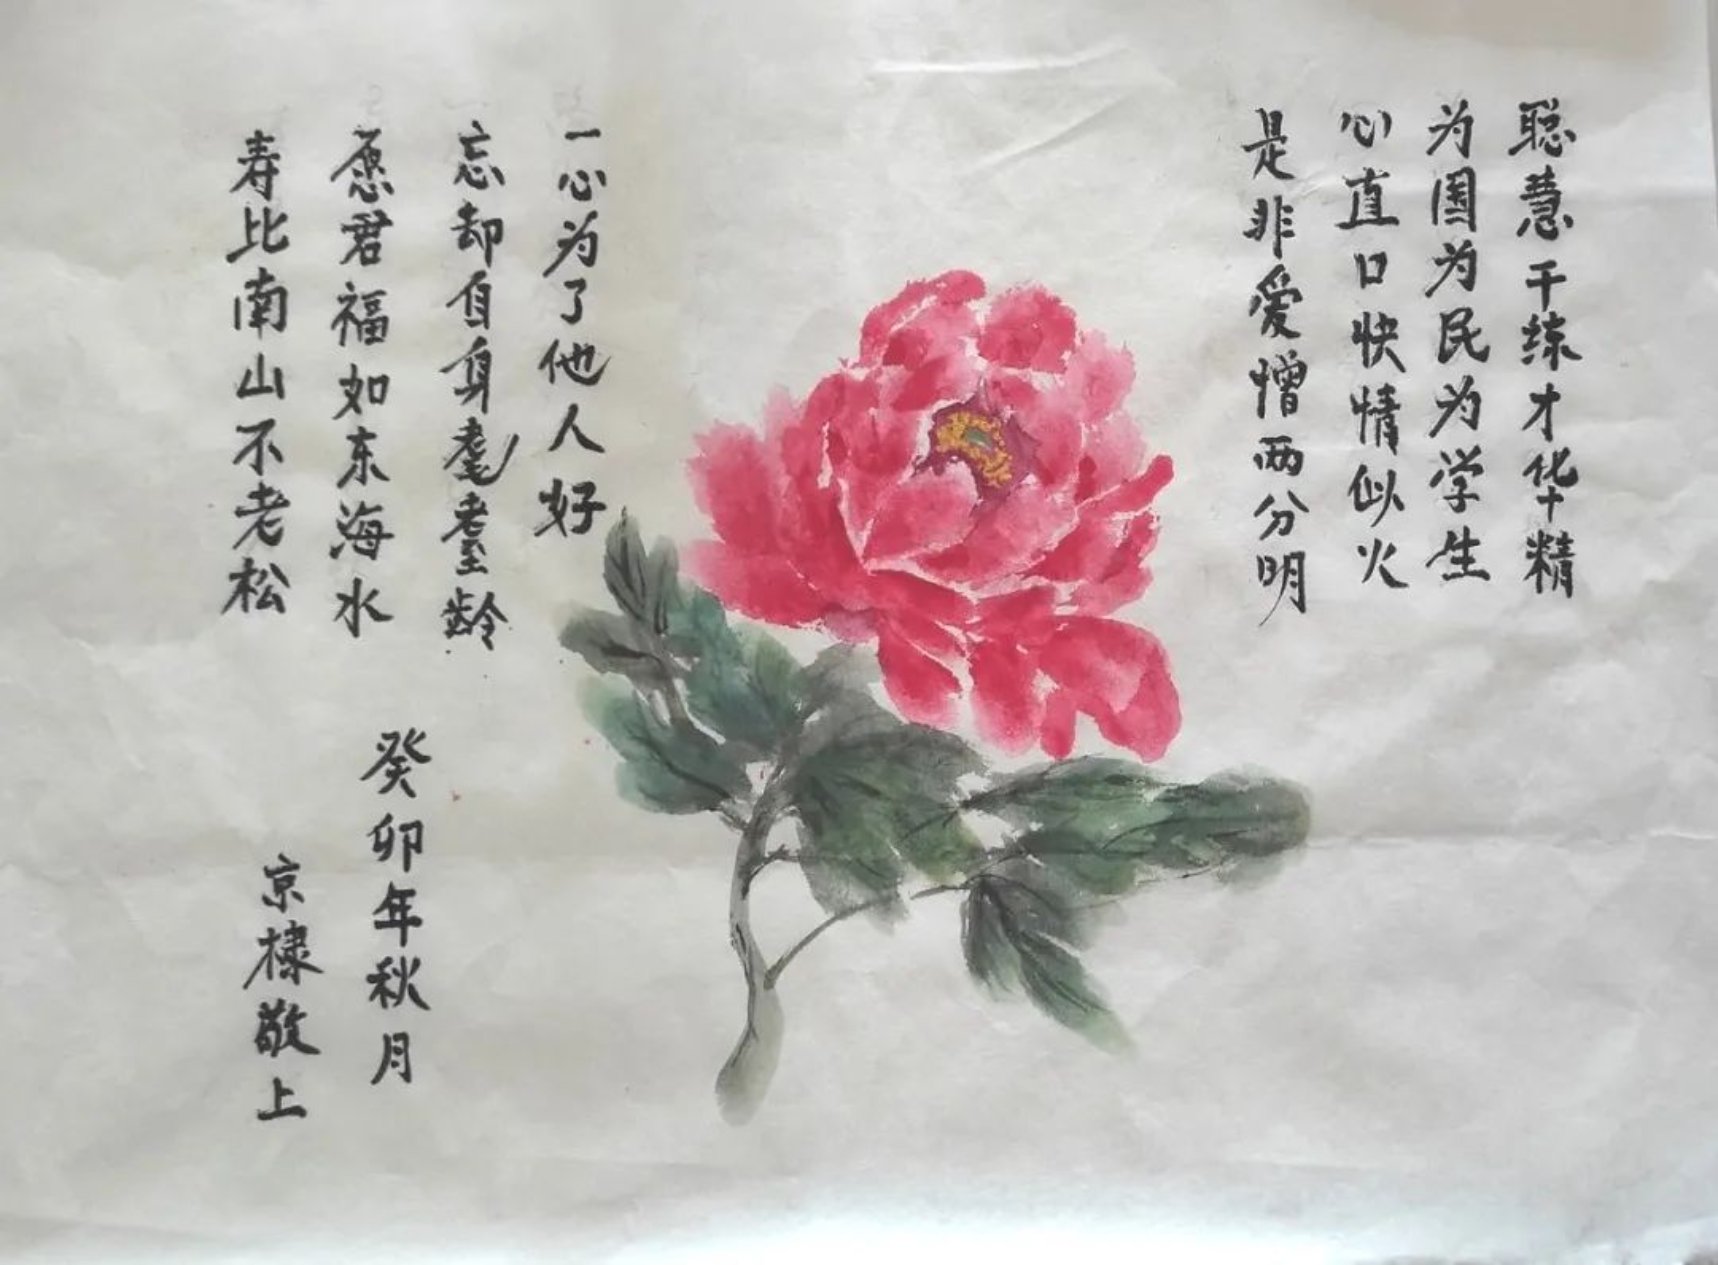 聪慧干练才华精
为国为民为学生
心直口快情似火
是非爱憎两分明
一心为了他人好
忘却自身耄耋龄
愿君福如东海水
寿比南山不老松
癸卯年秋月
京棣敬上